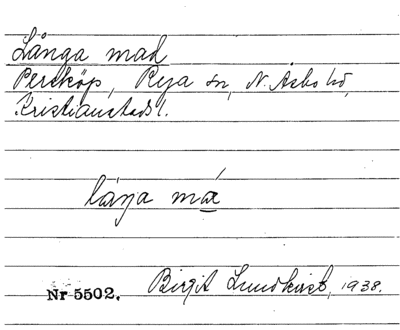 Långa mad
Perstköp, Rya sn, N. Åsbo hd,
Kristianstads l.
låŋa ma
Nr 5502.
Birgit Lundkvist, 1938.